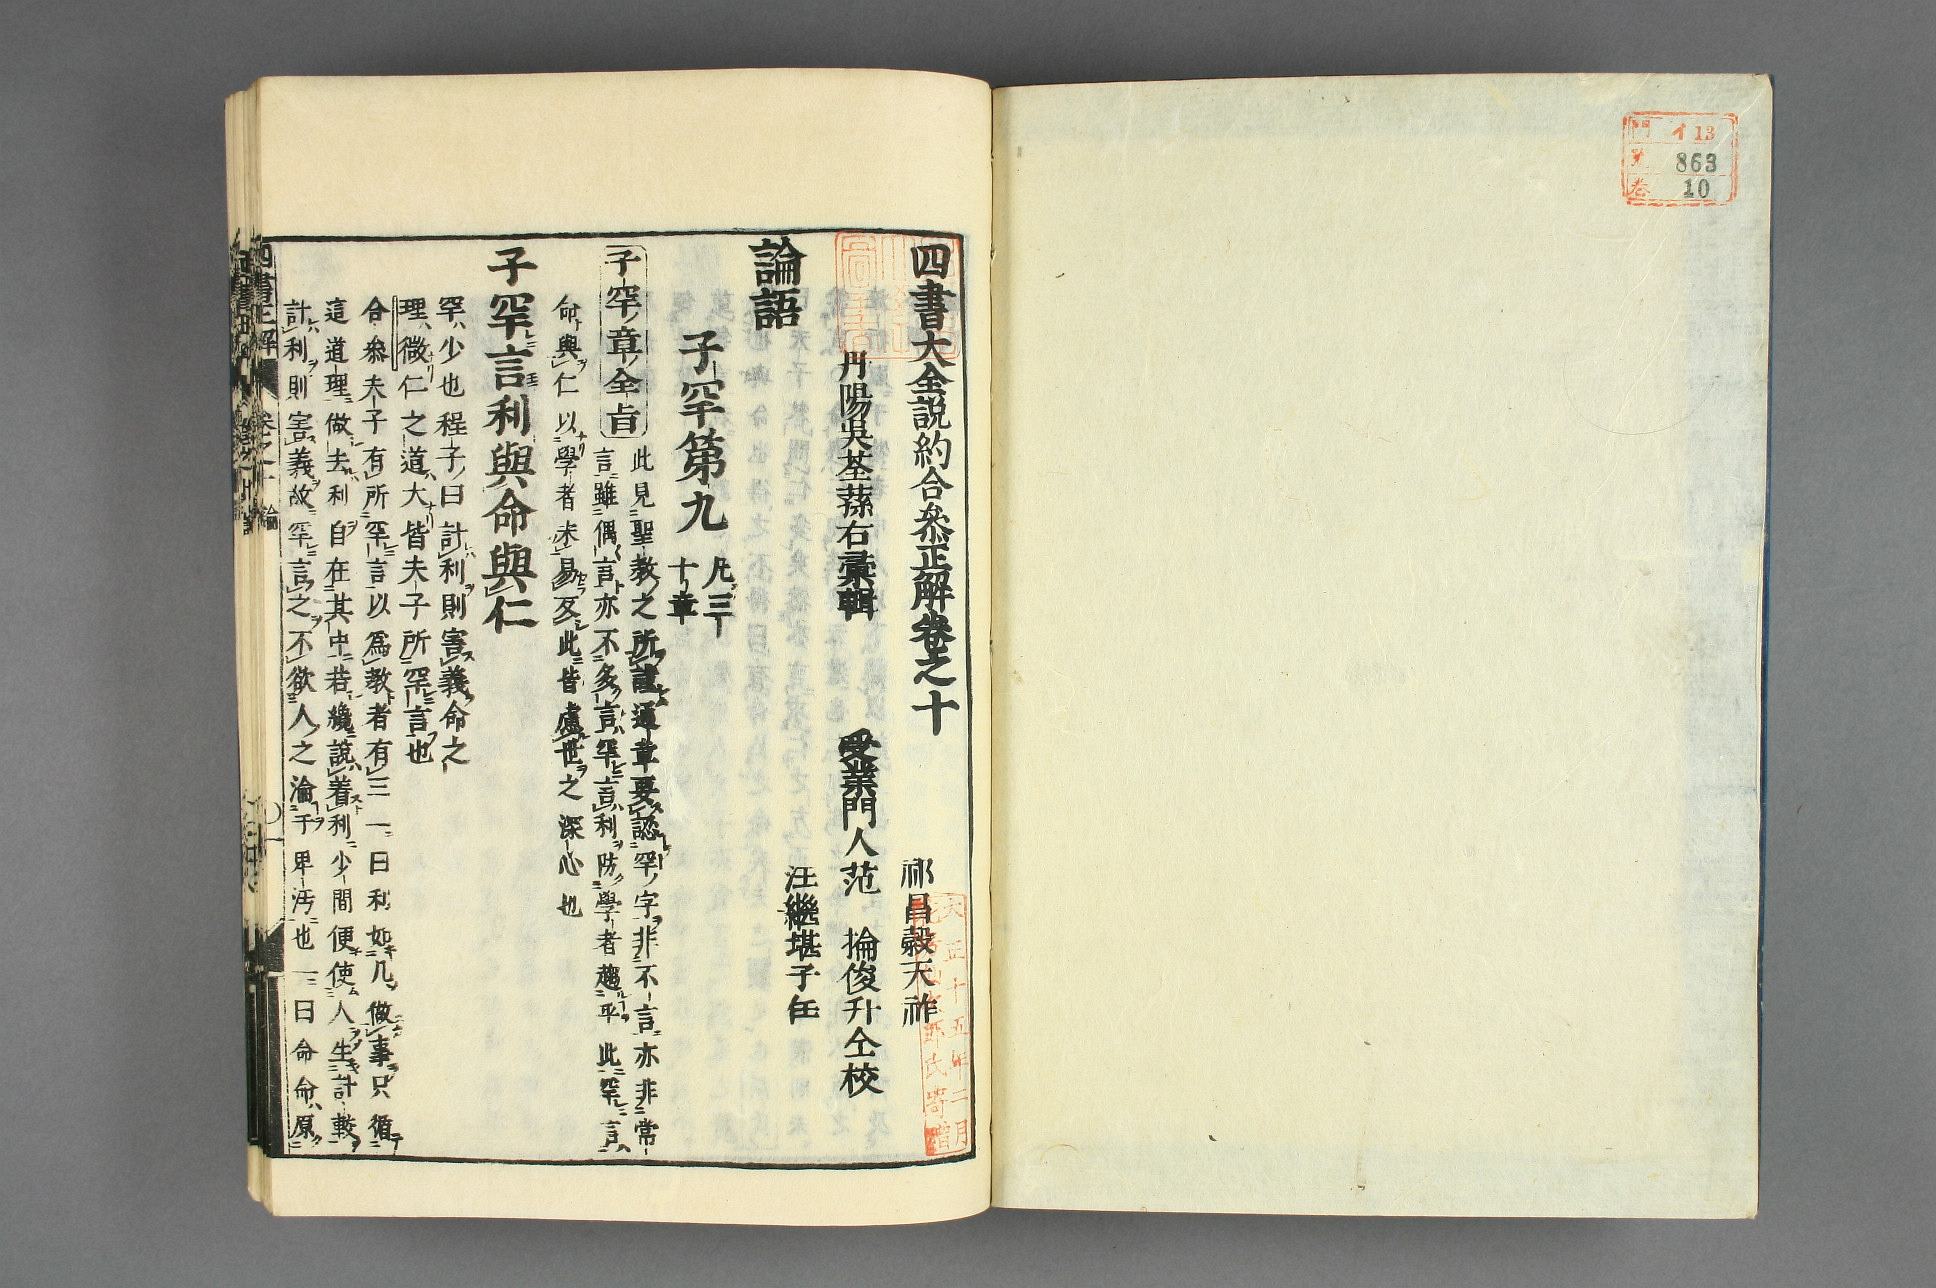 門 イ13
号 863
卷 10
四書大全説約合叅正解卷之十
丹陽吳荃蓀右彙輯
受業門人
祁昌穀天祚
范掄俊升仝校
汪繼堪子任
大正十五年二月
氏寄贈
論語
子罕第九 凡三十章
子罕章全旨
此見聖教之所謹通章要認罕ノ字ヲ非不言亦非常
言雖偶言亦不多言罕言利防學者趨乎此罕言
命與仁以學者未易及此皆慮世之深心也
子罕言利與命與仁
罕少也程子曰計利則害義命之
理微仁之道大皆夫子所罕言也
合叅夫子有所罕言以爲教者有三一曰利如凡做事只循
這道理做去利自在其中若纔說着利少間便使人生計較
計利則害義故罕言之不欲人之淪于卑汚也一曰命命原
四書正解 卷之十 論